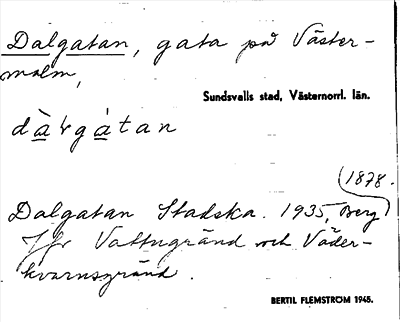 Dalgatan, gata på Väster-
malm,
Sundsvalls stad, Västernorrl. län.
dàlgàtan
1878.
Dalgatan Stadska. 1935, Berg
Jfr Vattugränd och Väder-
kvarnsgränd.
BERTIL FLEMSTRÖM 1945.